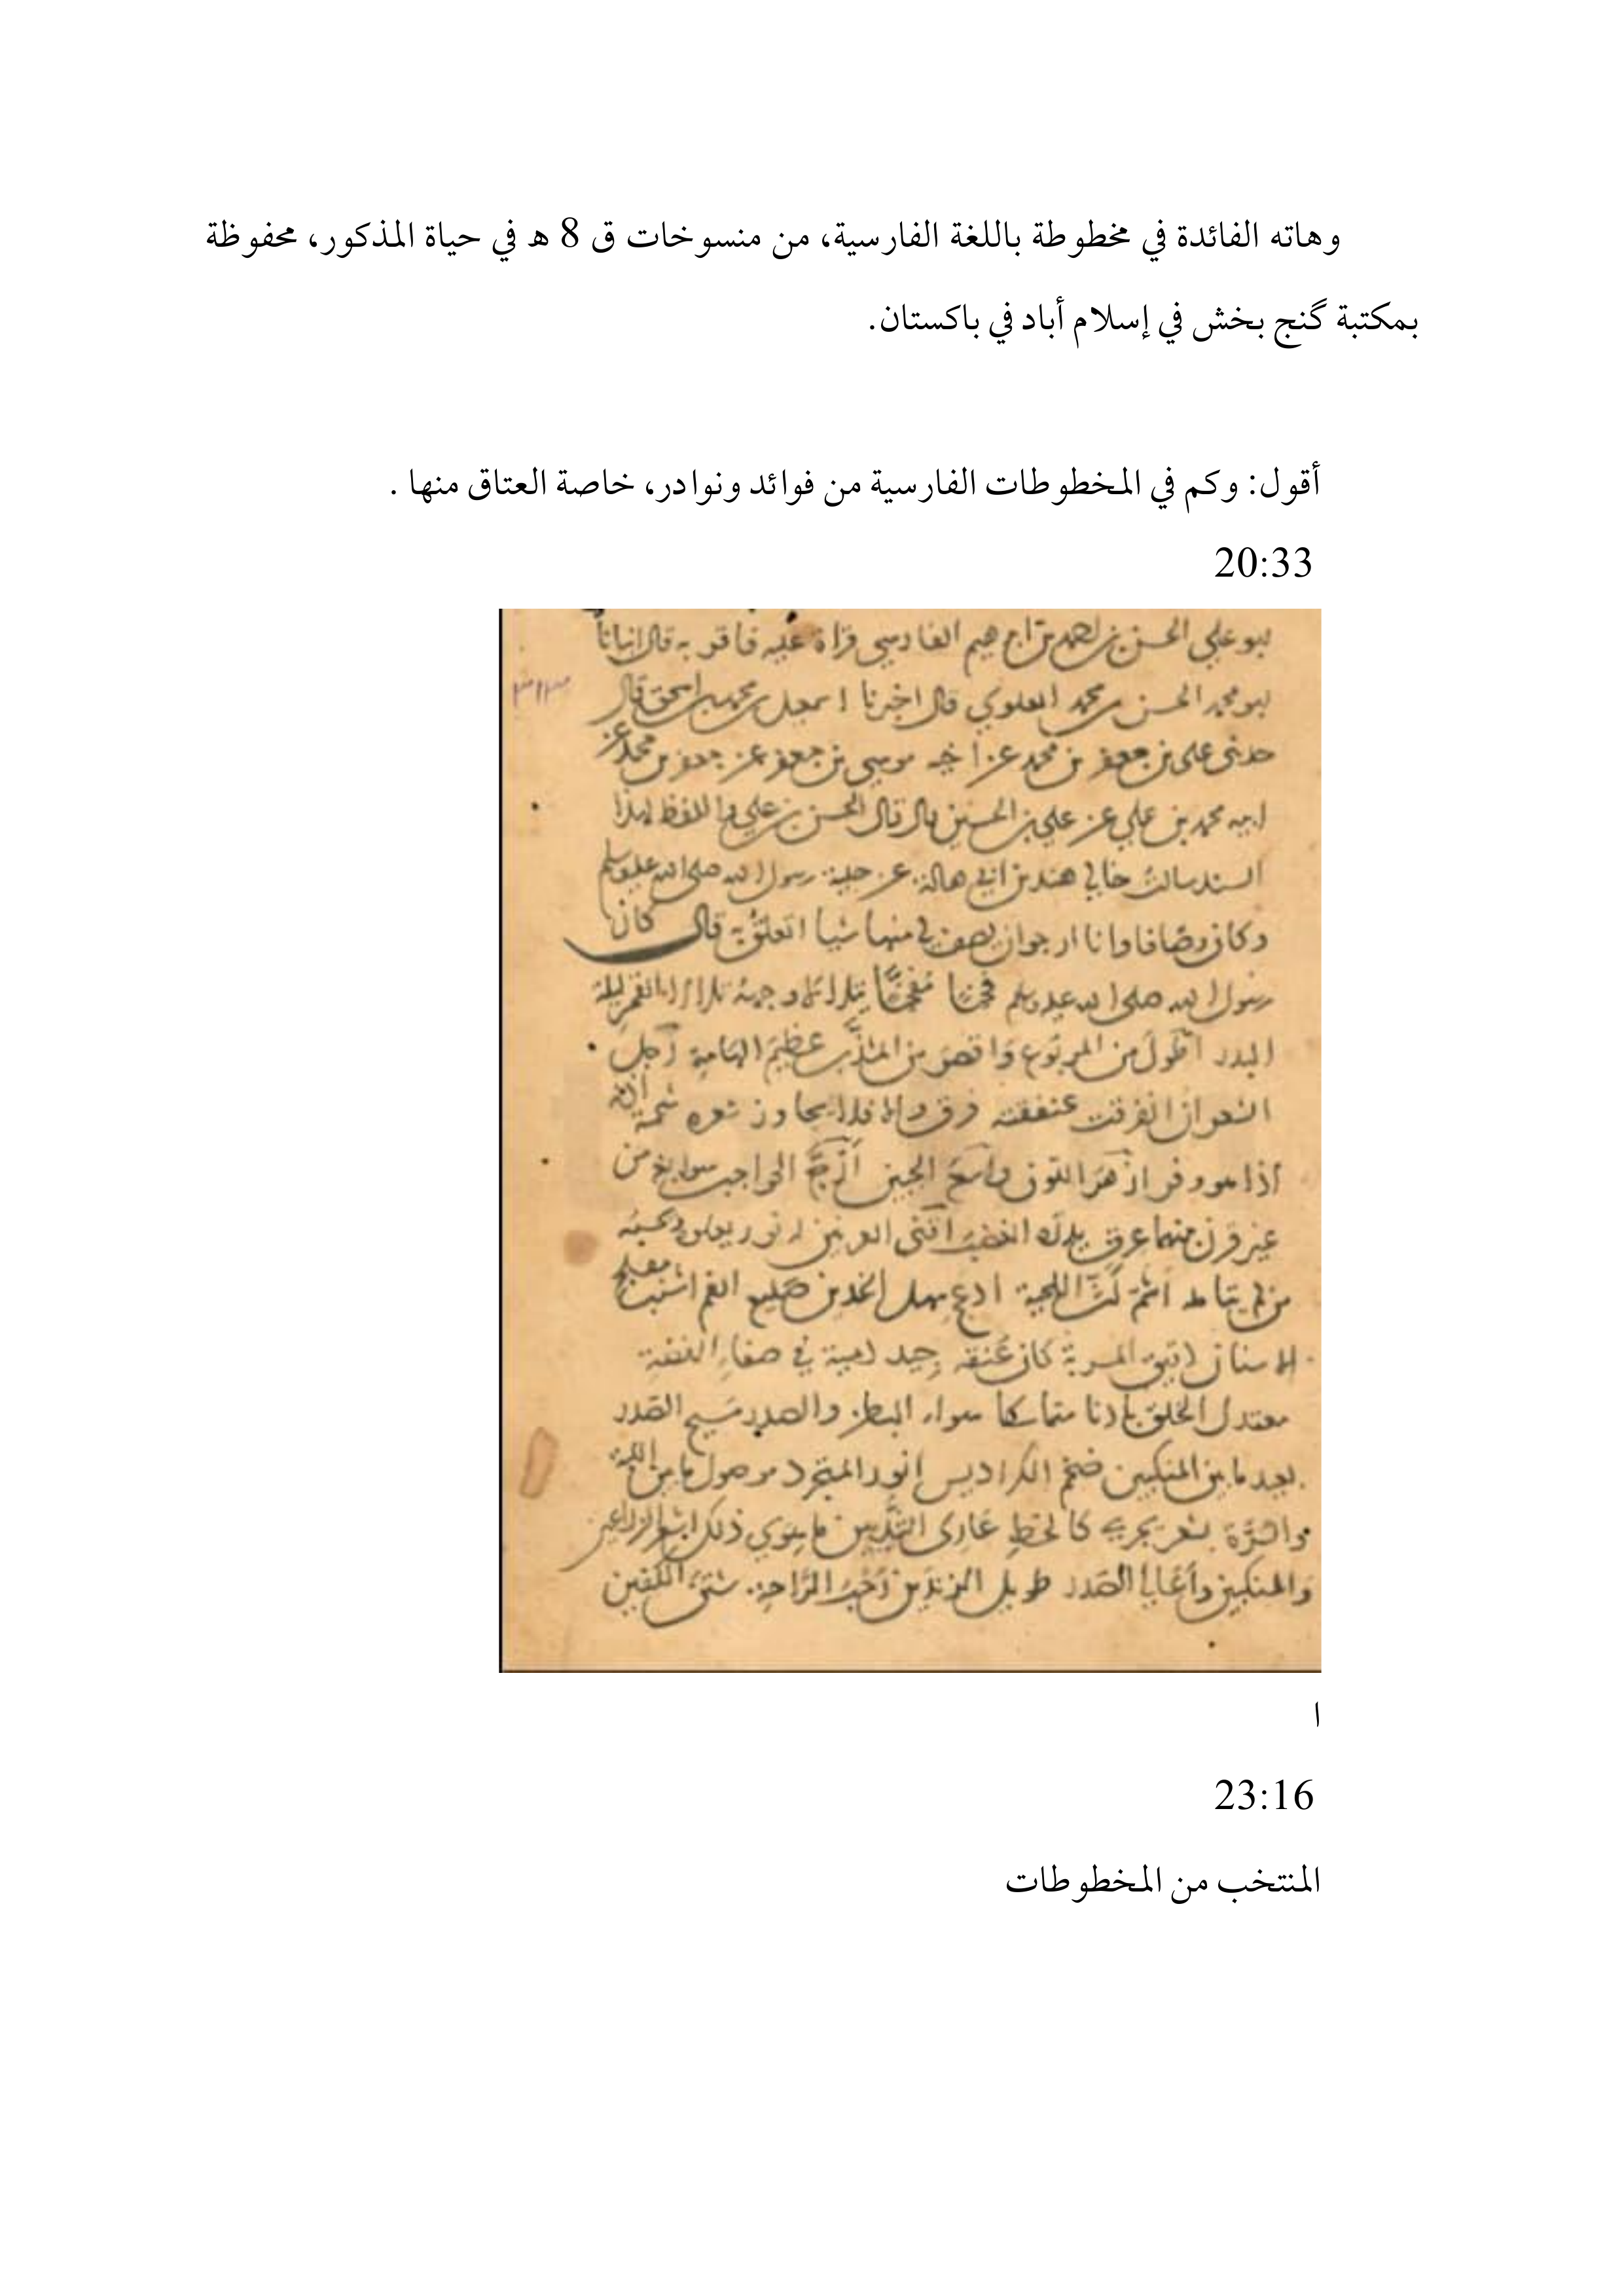 وهاته الفائدة في مخطوطة باللغة الفارسية، من منسوخات ق 8 ه في حياة المذكور، محفوظة
بمكتبة گنج بخش في إسلام أباد في باكستان.
أقول: وكم في المخطوطات الفارسية من فوائد ونوادر، خاصة العتاق منها .
20:33
ابو علي الحسن بن احمد بن ابراهيم الفارسي قراة عليه فاقر به قال انبانا
ابو محمد الحسن بن محمد العلوي قال اخبرنا اسمعيل بن محمد بن اسحق قال
٣١٣
حدثني علي بن جعفر بن محمد عن اخيه موسى بن جعفر عن جعفر بن محمد عن
ابيه محمد بن علي عن علي بن الحسين قال قال الحسن بن علي واللفظ لهذا
السند سالت خالي هند بن ابي هالة عن حلية رسول الله صلى الله عليه وسلم
وكان وصافا وانا ارجو ان يصف لي منها شيا اتعلق به قال كان
رسول الله صلى الله عليه وسلم فخما مفخما يتلالا وجهه تلالا القمر ليلة
البدر اطول من المربوع واقصر من المشذب عظيم الهامة رجل
الشعر ان انفرقت عنفقته فرق والا فلا يجاوز شعره شحمة اذنه
اذا هو وفر ازهر اللون واسع الجبين ازج الحواجب سوابغ من
غير قرن بينهما عرق يدره الغضب اقنى العرنين له نور يعلوه يحسبه
من لم يتامله اشم كث اللحية ادعج سهل الخدين ضليع الفم اشنب مفلج
الاسنان دقيق المسربة كان عنقه جيد دمية في صفاء الفضة
معتدل الخلق بادنا متماسكا سواء البطن والصدر مسيح الصدر
بعيد ما بين المنكبين ضخم الكراديس انور المتجرد موصول ما بين اللبة
والسرة بشعر يجري كالخط عاري الثديين ما سوي ذلك اشعر الذراعين
والمنكبين واعالي الصدر طويل الزندين رحب الراحة شثن الكفين
ا
23:16
المنتخب من المخطوطات